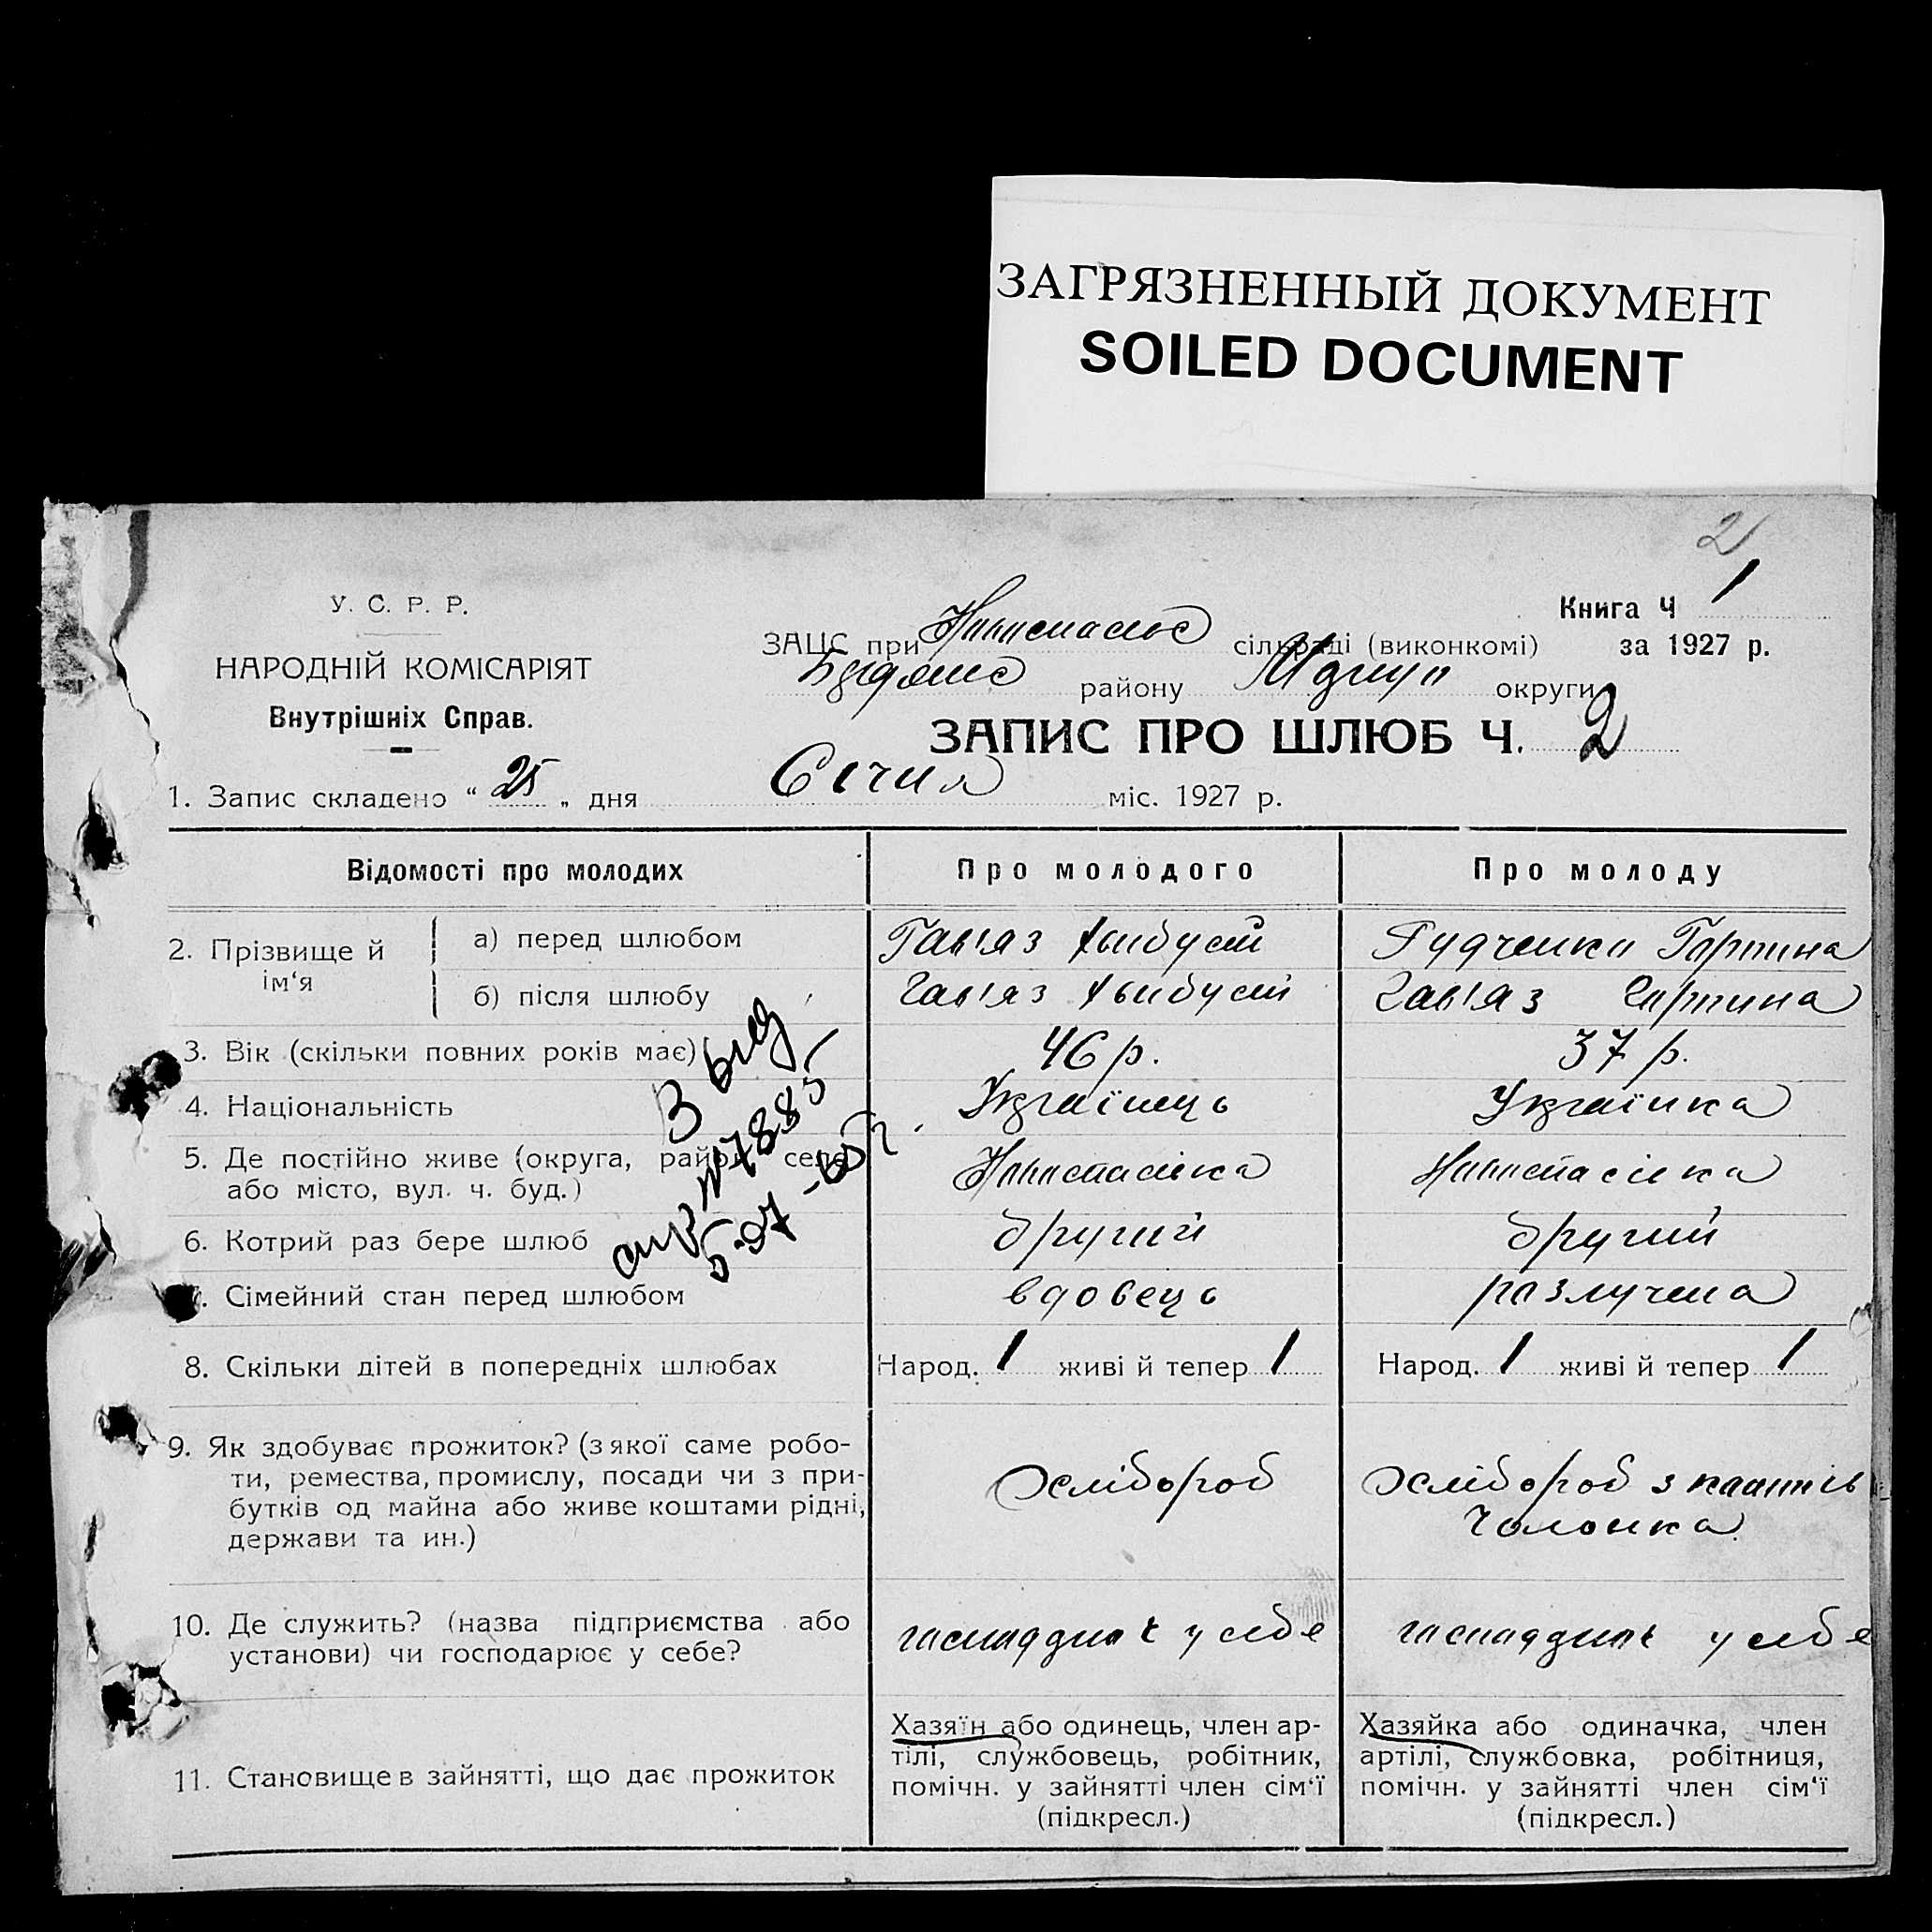 ЗАГРЯЗНЕННЫЙ ДОКУМЕНТ
SOILED DOCUMENT
2
У. С. Р. Р.
НАРОДНІЙ КОМІСАРІЯТ
Внутрішніх Справ.
Книга Ч 1
ЗАЦС при сільраді (виконкомі) за 1927 р.
району округи
ЗАПИС ПРО ШЛЮБ Ч. 2
1. Запис складено “ 25 „ дня Січня міс. 1927 р.
Відомості про молодих
Про молодого
Про молоду
2. Прізвище й ім‘я
а) перед шлюбом
б) після шлюбу
3. Вік (скільки повних років має)
46 р.
37 р.
4. Національність
Українець
Українка
5. Де постійно живе (округа, район, село або місто, вул. ч. буд.)
6. Котрий раз бере шлюб
другий
другий
7. Сімейний стан перед шлюбом
вдовець
разлучена
8. Скільки дітей в попередніх шлюбах
Народ. 1 живі й тепер 1
Народ. 1 живі й тепер 1
9. Як здобуває прожиток? (з якої саме робо-
ти, ремества, промислу, посади чи з при-
бутків од майна або живе коштами рідні,
держави та ин.)
Хлібороб
Хлібороб з коштів
Чоловіка
10. Де служить? (назва підприємства або
установи) чи господарює у себе?
у себе
у себе
11. Становище в зайнятті, що дає прожиток
Хазяїн або одинець, член ар-
тілі, службовець, робітник,
помічн. у зайнятті член сім‘ї
(підкресл.)
Хазяйка або одиначка, член
артілі, службовка, робітниця,
помічн. у зайнятті член сім‘ї
(підкресл.)